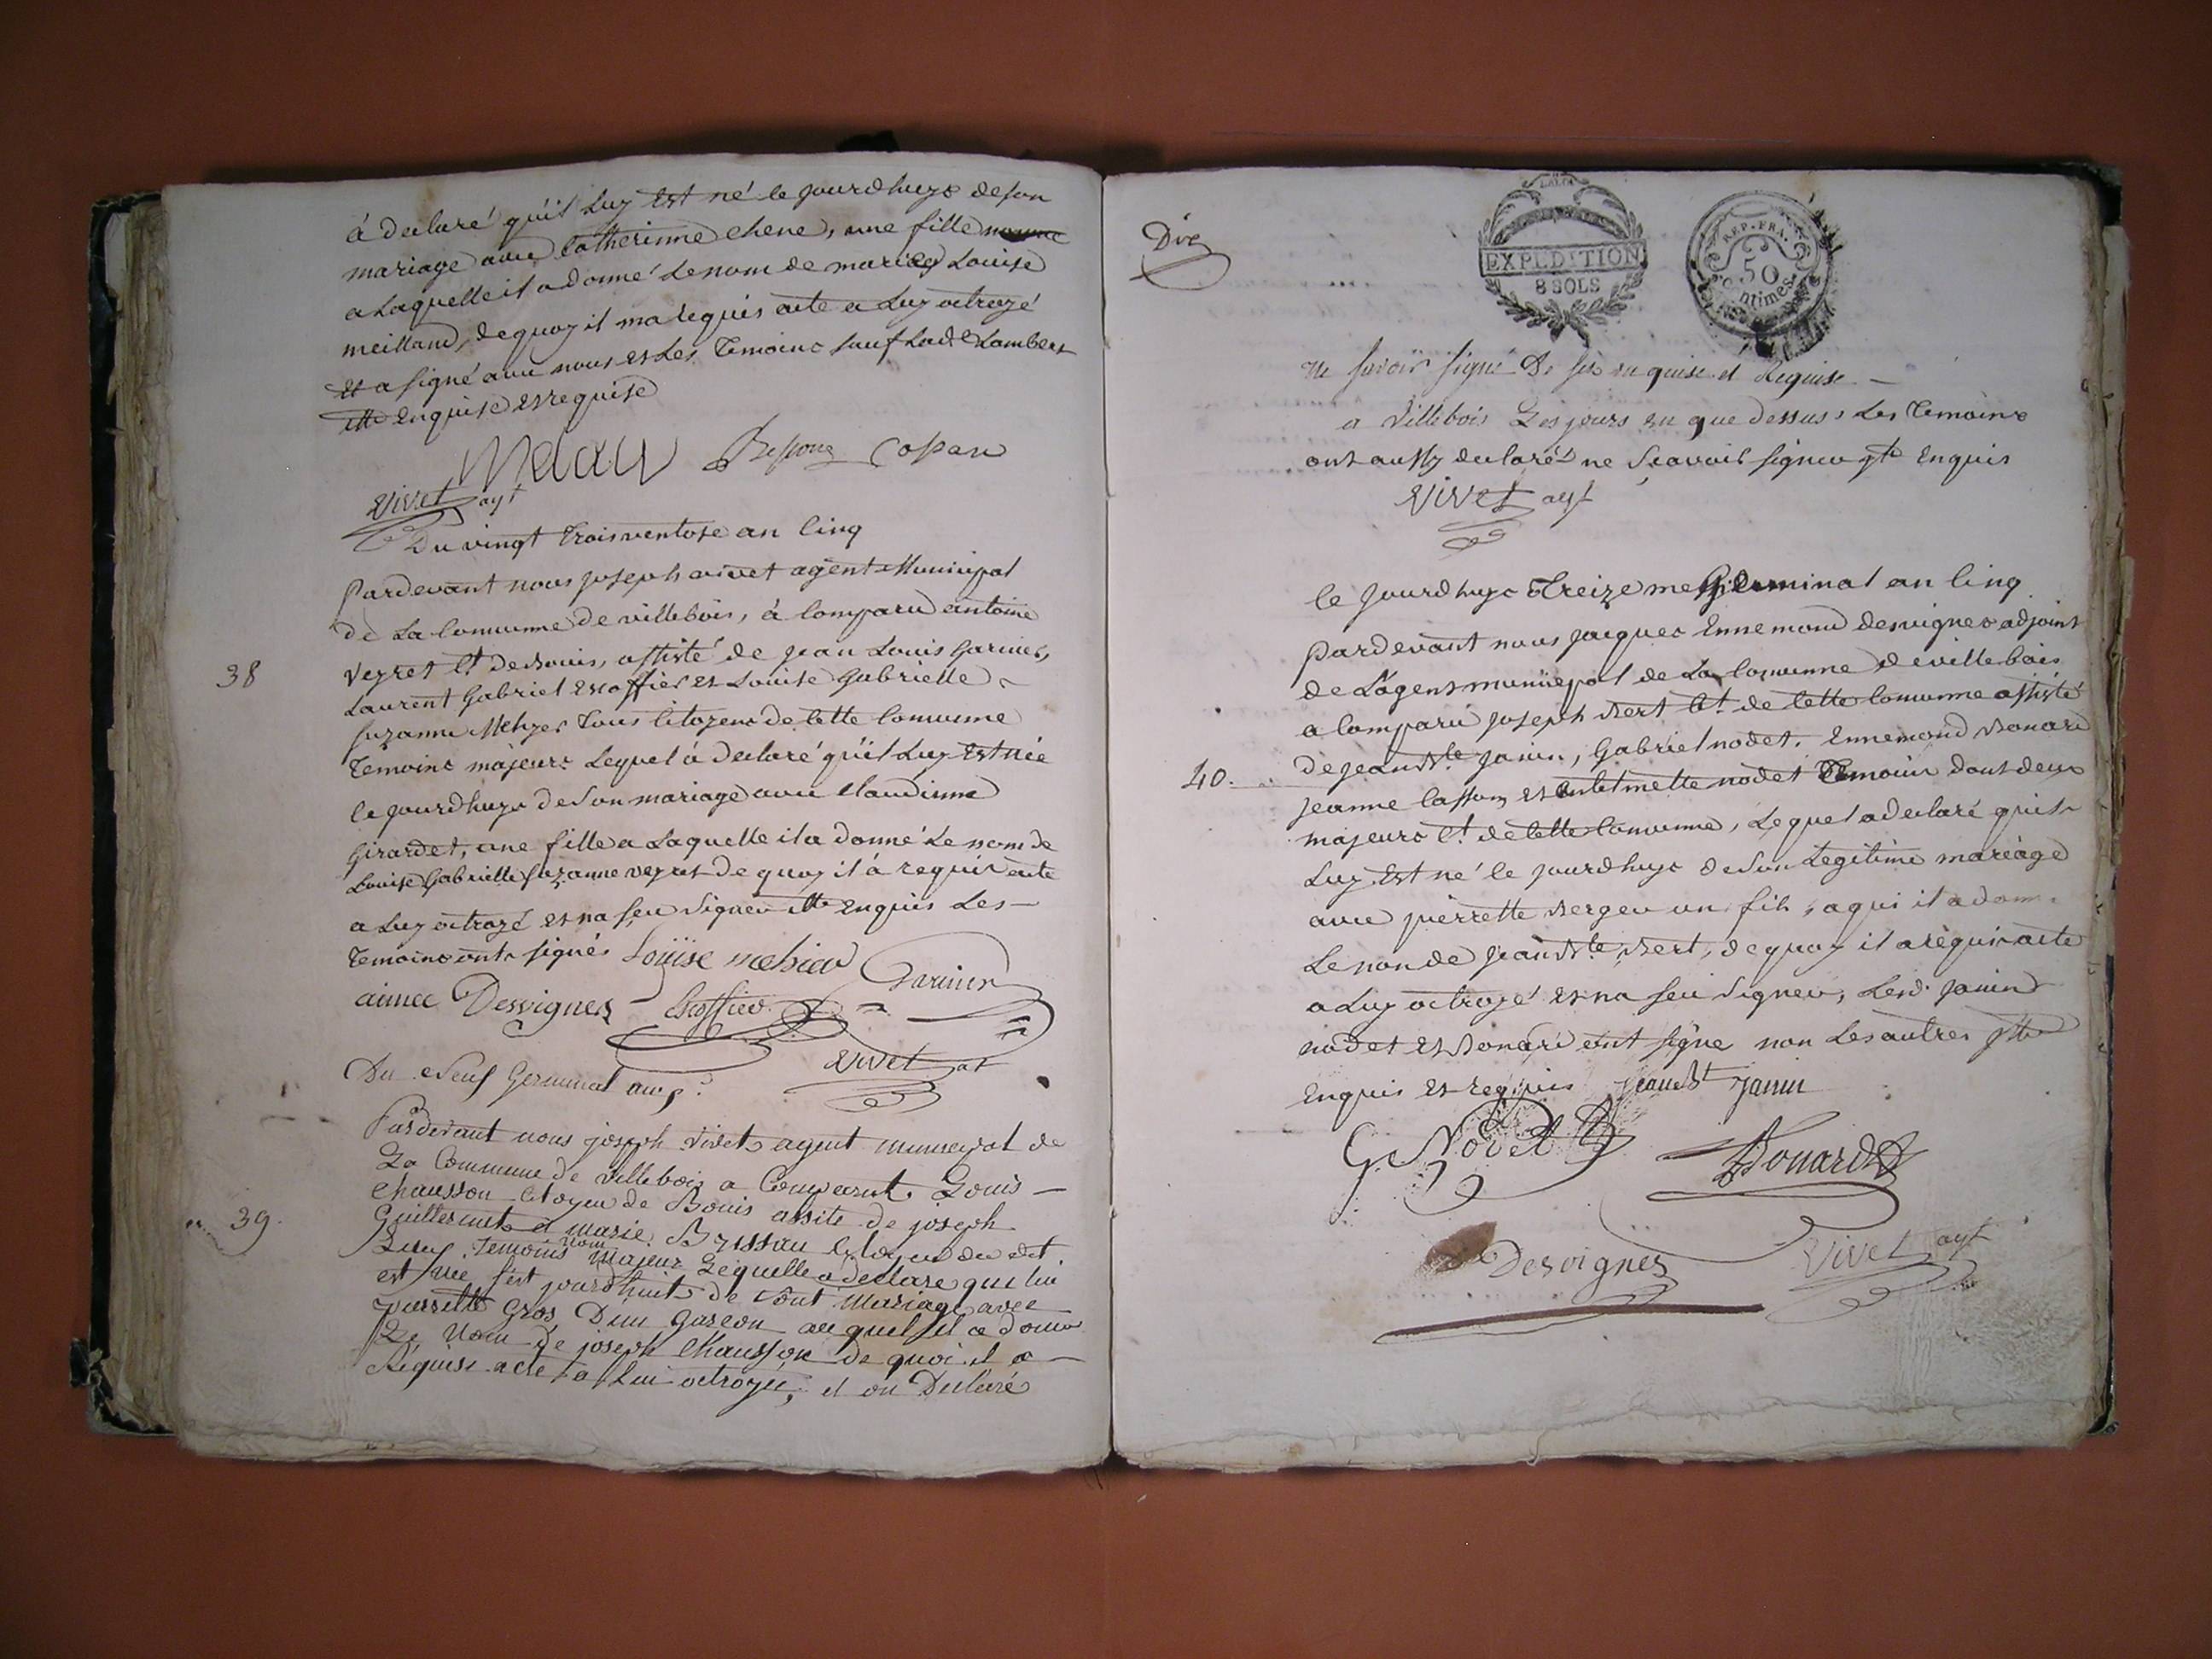 à declaré qu'il Luy est né le jourdhuyc de son
mariage avec Catherinne chene, une fille
a Laquelle il a donné Le nom de mariee Louise
meilland, de quoy il ma requis acte a Luy octroyé
et a signé avec nous et Les Temoins sauf Lade Lambert
Enquise et requise
Besson Copan
Vivet agt
Du vingt trois ventose an Cinq
Pardevant nous joseph vivet agent Municipal
de La Commune de villebois, à Comparu antoine
38
veyret Ct. de Bouis, assisté de jean Louis Garinier,
Laurent Gabriel Escoffier et Louise Gabrielle
suzanne Mehyer Tous Citoyens de Cette Commune
Temoins majeurs Lequel à declaré qu'il Luy est née
le jourdhuyc de son mariage avec Claudinne
Girardet, une fille a Laquelle il a donné Le nom de
Louise Gabrielle suzanne veyret de quoy il à requis acte
a Luy octroyé et na seu signer enquis Les
Temoins ont signés Louise mehier Garinier
aimee Desvignes Escoffier
Vivet at
Du Neuf Germinal an 5
Pardevant nous joseph Vivet agent municipal de
La Commune de villebois a Comparut Louis
39.
Chausson Citoyen de Bouis assité de joseph
Guillermet et Marie Brissau Citoyen du dit
Lieu Temoins Nom Majeur Lequelle a declare que lui
est née sest jourdhuit de sont Mariage avec
pierrette Gros D'un garcon au quel il a donné
Le Nom de joseph Chausson de quoi il a
Requise acte a Lui octroyée, et on Declaré
Dix
EXPEDITION
8 SOLS
REP. FRA.
50
centimes
ne savoir signé De ses enquise et Requise
a Villebois Les jours en que dessus Les Temoins
ont aussy declarés ne scavoir signer enquis
Vivet agt
le jourdhuyc Treizeme Germinal an Cinq
pardevant nous jacques Ennemond desvignes adjoint
de L'agent municipal de La Commune de villebois
a Comparu joseph Bert Ct. de Cette Commune assisté
de jean Bte janin, Gabriel nodet. Ennemond Bonard
40.
jeanne Casson et nodet Temoins dont deux
majeurs Ct. de Cette Commune, Lequel a declaré qu'il
Luy est né le jourdhuyc de son Legitime mariage
avec pierrette Berger un fils, a qui il a donné
Le nom de jean Bte Bert, de quoy il a requis acte
a Luy octroyé et na seu signer, Lesd. janin
nodet et Bonard ont signe non Les autres
Enquis et requis jean Bt janin
G. Nodet Bonard
Desvignes Vivet agt